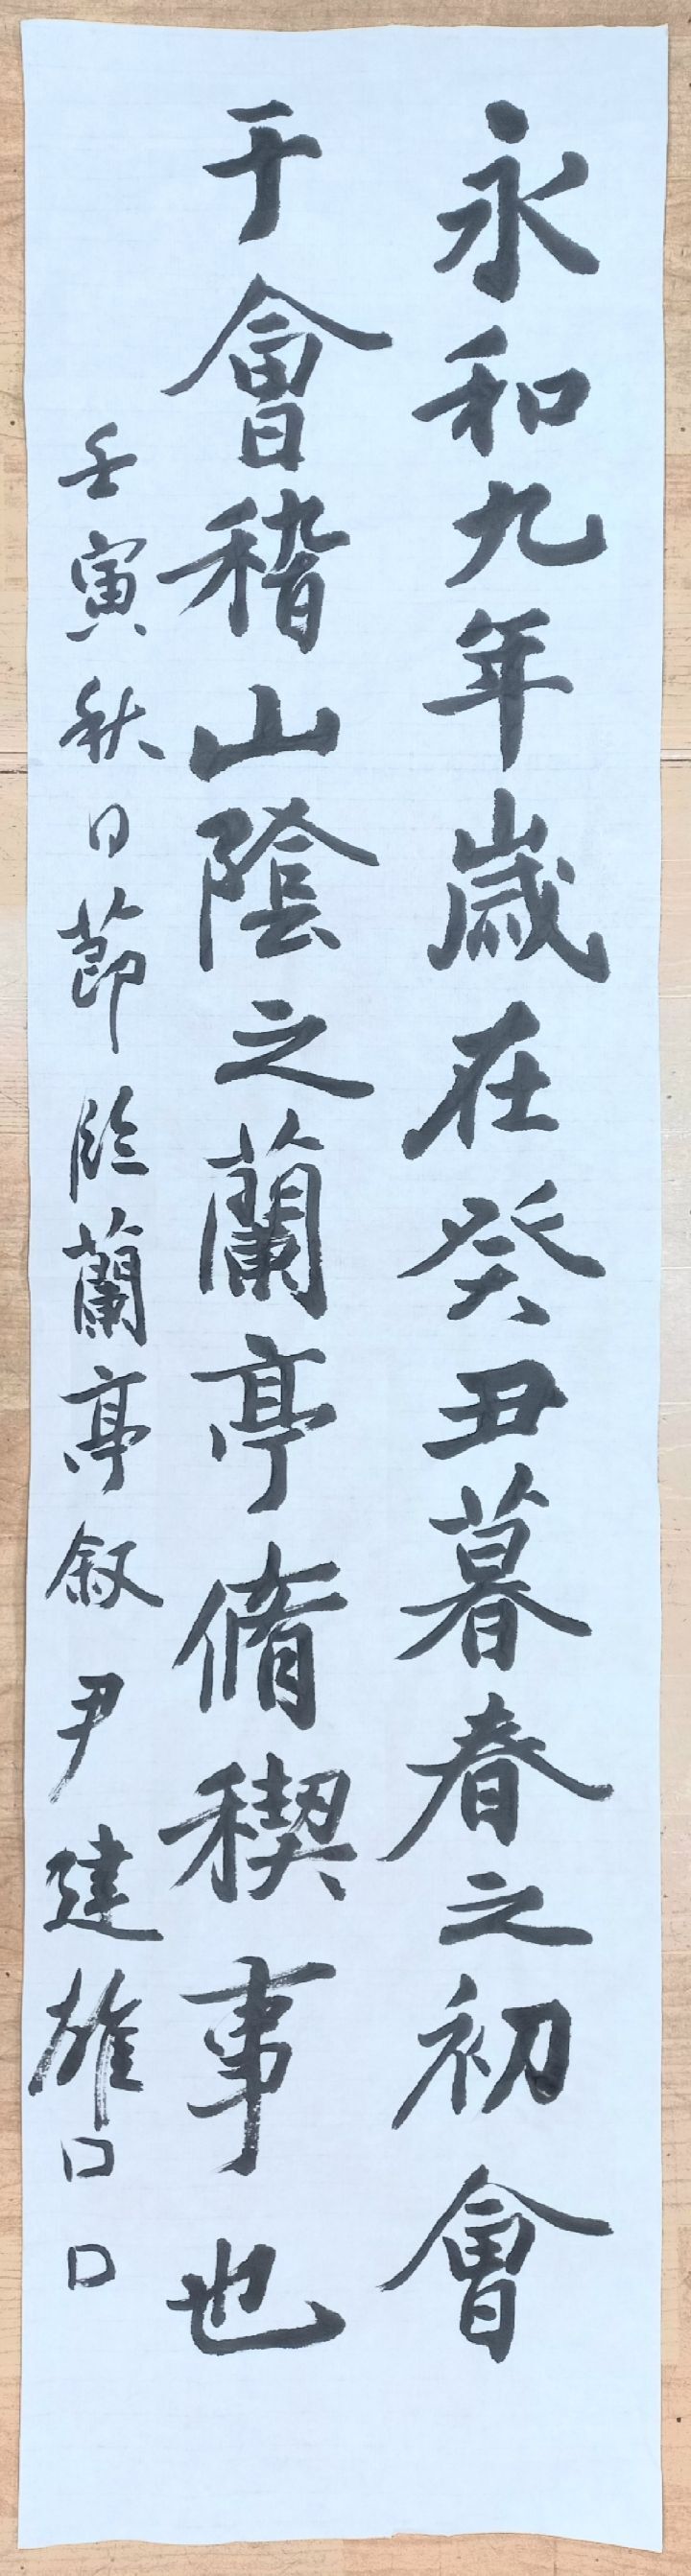 永和九年歲在癸丑暮春之初會
于會稽山陰之蘭亭脩稧事也
壬寅秋日節臨蘭亭叙尹建雄口口